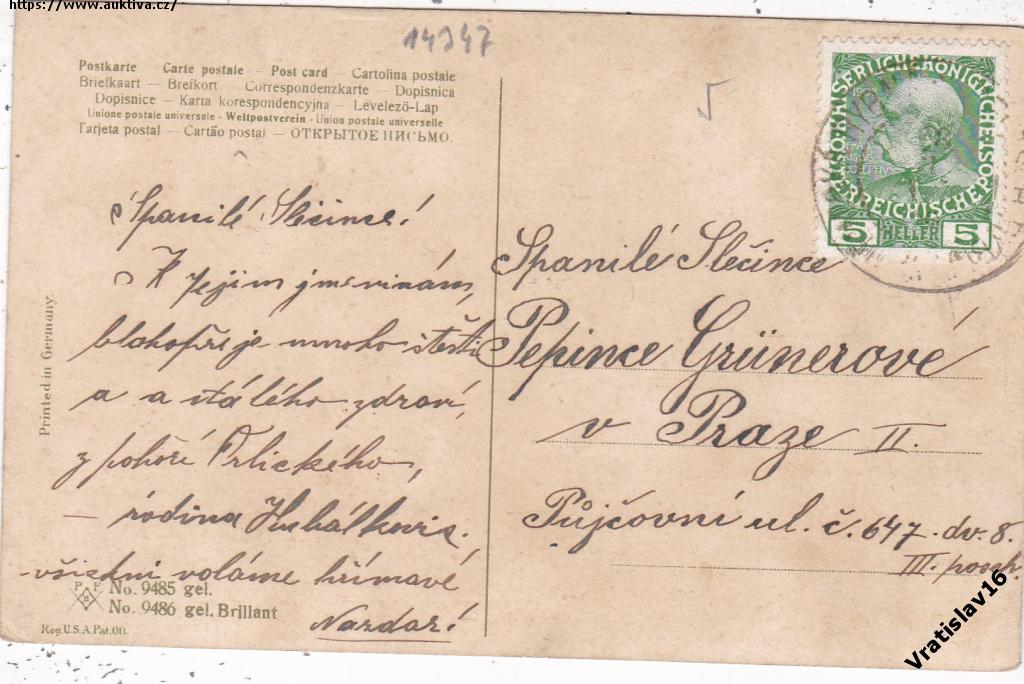 https://www.auktiva.cz/
14347
Postkarte – Carte postale – Post card – Cartolina postale
Briefkaart – Brefkort – Correspondenzkarte – Dopisnica
Dopisnice – Karta korespondencyjna – Levelező-Lap
Unione postale universale – Weltpostverein – Union postale universelle
Tarjeta postal – Cartão postal – ОТКРЫТОЕ ПИСЬМО.
KAISERLICHE KÖNIGLICHE
ÖSTERREICHISCHE POST
1908
5 HELLER 5
Spanilé Slečince!
K Jejím jmeninám,
blahopřeje mnoho štěstí
a a stálého zdraví,
z pohoří Orlického,
– rodina
– všickni voláme hřímavé
Nazdar!
Spanilé Slečince
Pepince Grünerové
v Praze II.
Půjčovní ul. č. 647. dv. 8.
III. posch.
Printed in Germany.
P F
B
No. 9485 gel.
No. 9486 gel. Brillant
Reg. U.S.A. Pat. Off.
Vratislav16